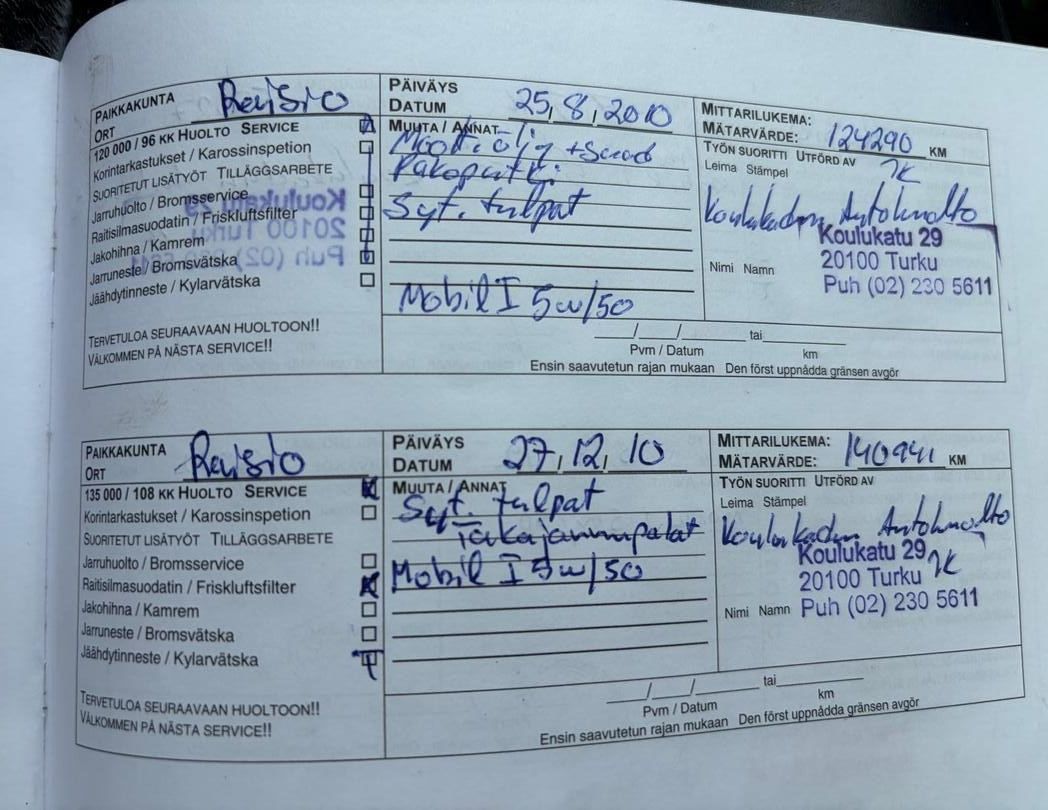 PAIKKAKUNTA Raisio
ORT
120 000 / 96 KK HUOLTO SERVICE
Korintarkastukset / Karossinspetion
SUORITETUT LISÄTYÖT TILLÄGGSARBETE
Jarruhuolto / Bromsservice
Raitisilmasuodatin / Friskluftsfilter
Jakohihna / Kamrem
Jarruneste / Bromsvätska
Jäähdytinneste / Kylarvätska
TERVETULOA SEURAAVAAN HUOLTOON!!
VÄLKOMMEN PÅ NÄSTA SERVICE!!
PÄIVÄYS
DATUM 25,8,2010
MUUTA / ANNAT
Moott.öljy +Suod
Pakoputki
Syt. tulpat
Mobil I 5w/50
/ / tai
Pvm / Datum km
Ensin saavutetun rajan mukaan Den först uppnådda gränsen avgör
MITTARILUKEMA:
MÄTARVÄRDE: 124290 KM
TYÖN SUORITTI UTFÖRD AV
Leima Stämpel
Koulukadun Autohuolto
Koulukatu 29
20100 Turku
Nimi Namn
Puh (02) 230 5611
PAIKKAKUNTA Raisio
ORT
135 000 / 108 KK HUOLTO SERVICE
Korintarkastukset / Karossinspetion
SUORITETUT LISÄTYÖT TILLÄGGSARBETE
Jarruhuolto / Bromsservice
Raitisilmasuodatin / Friskluftsfilter
Jakohihna / Kamrem
Jarruneste / Bromsvätska
Jäähdytinneste / Kylarvätska
TERVETULOA SEURAAVAAN HUOLTOON!!
VÄLKOMMEN PÅ NÄSTA SERVICE!!
PÄIVÄYS
DATUM 27,12,10
MUUTA / ANNAT
Syt. tulpat
Mobil I 5w/50
/ / tai
Pvm / Datum km
Ensin saavutetun rajan mukaan Den först uppnådda gränsen avgör
MITTARILUKEMA:
MÄTARVÄRDE: 140941 KM
TYÖN SUORITTI UTFÖRD AV
Leima Stämpel
Koulukadun Autohuolto
Koulukatu 29
20100 Turku
Nimi Namn Puh (02) 230 5611